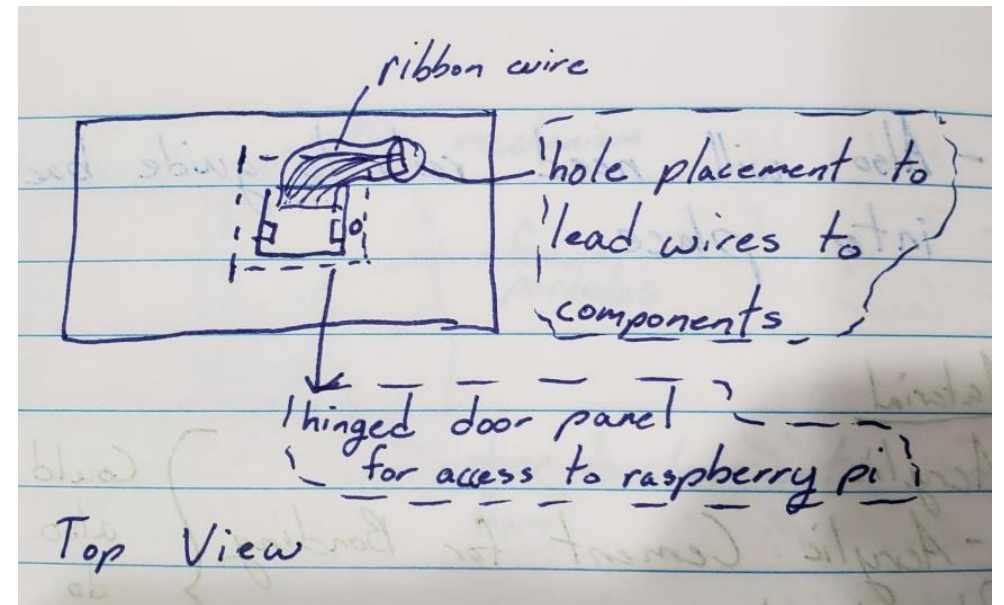 ribbon wire
hole placement to
lead wires to
components
hinged door panel
for access to raspberry pi
Top View